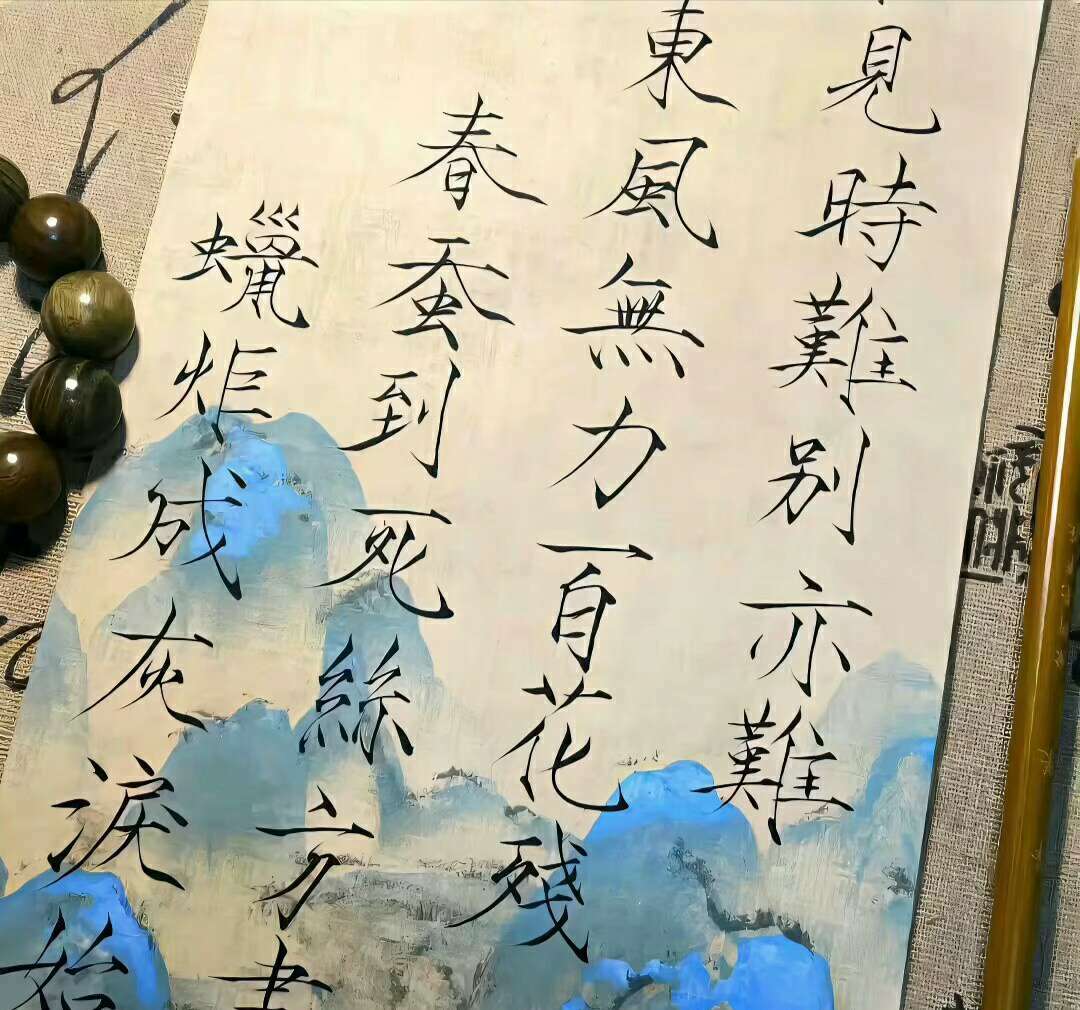 見時難別亦難
東風無力百花殘
春蚕到死絲方
蠟炬成灰淚始